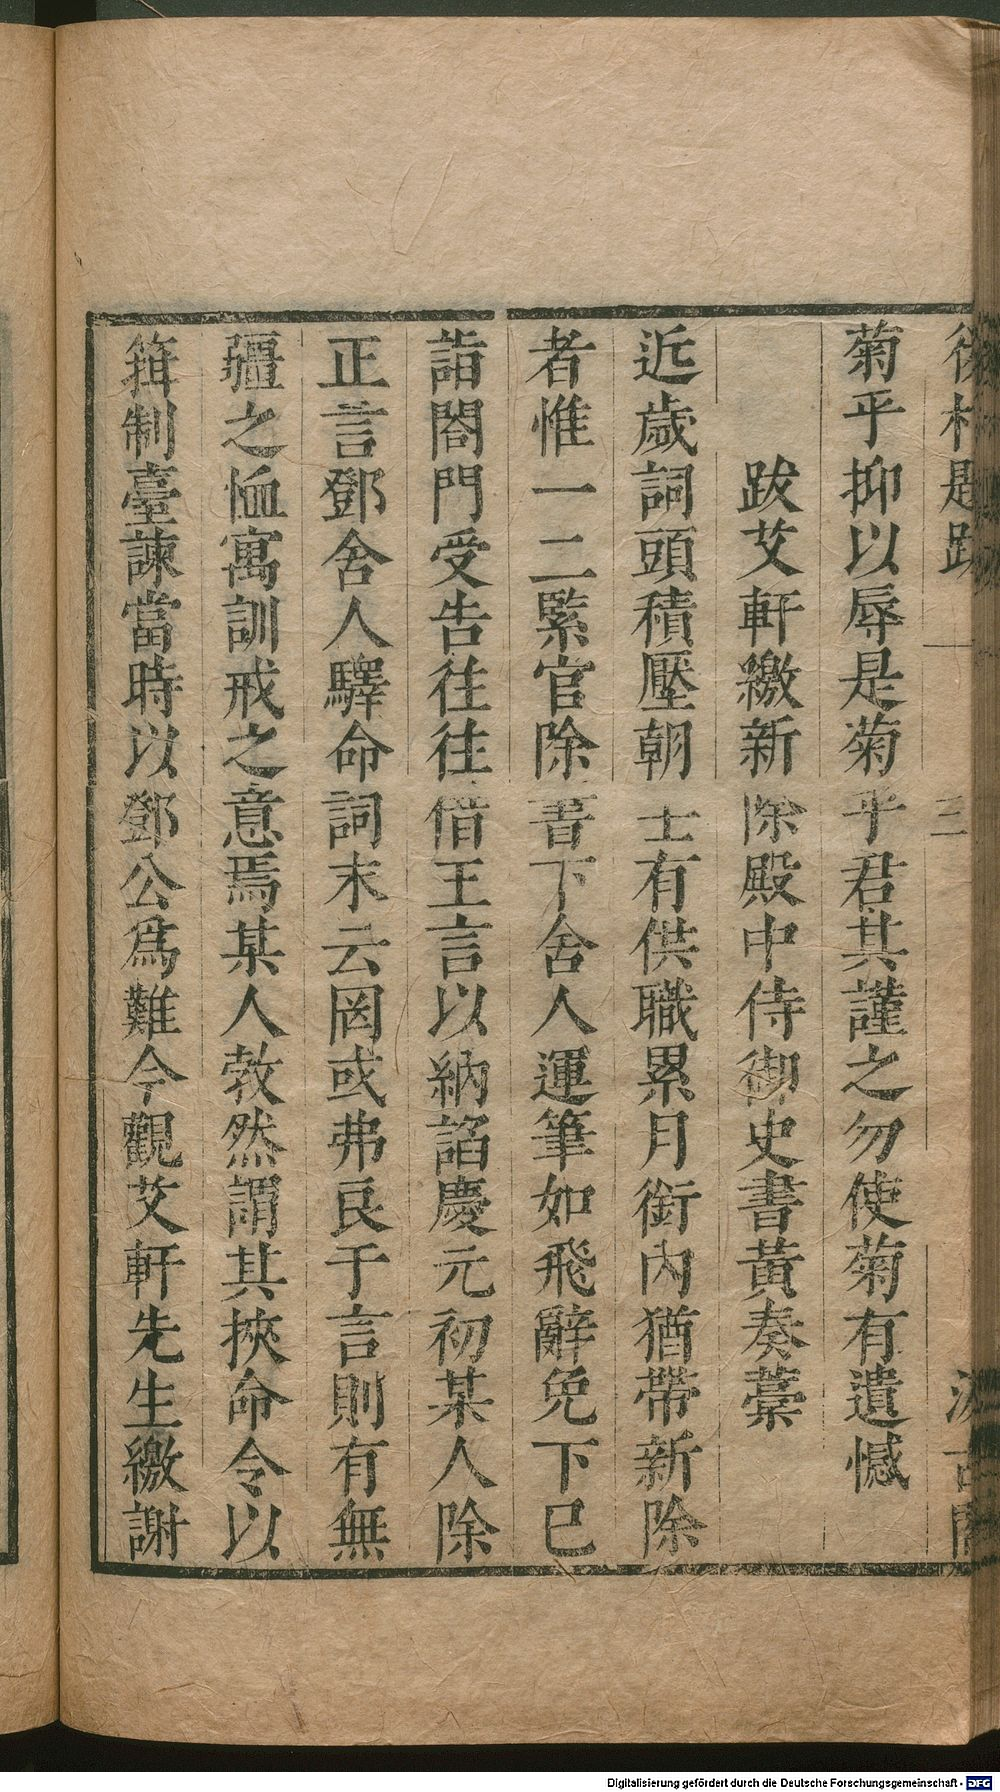 後村題跋 一 三 汲古閣
菊乎抑以辱是菊乎君其謹之勿使菊有遺憾
跋艾軒繳新除殿中侍御史書黃奏藁
近歲詞頭積壓朝士有供職累月銜內猶帶新除
者惟一二緊官除書下舍人運筆如飛辭免下已
詣閤門受告往往借王言以納諂慶元初某人除
正言鄧舍人驛命詞末云罔或弗良于言則有無
疆之恤寓訓戒之意焉某人敩然謂其挾命令以
箝制臺諫當時以鄧公爲難今觀艾軒先生繳謝
Digitalisierung gefördert durch die Deutsche Forschungsgemeinschaft - DFG